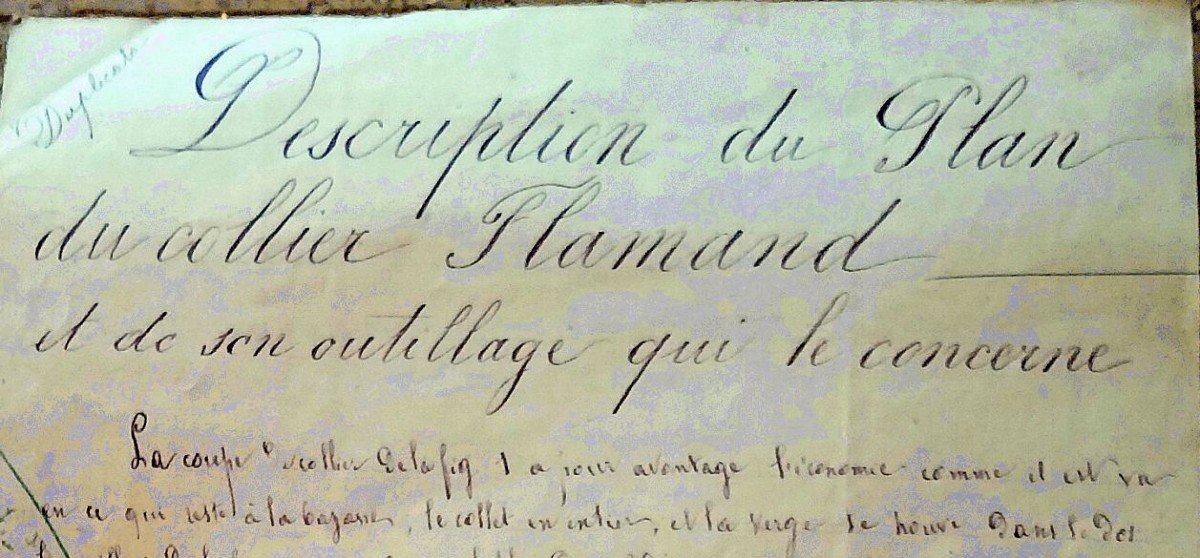 Duplicata
Description du Plan
du collier Flamand
et de son outillage qui le concerne
La coupe collier de la fig 1 a pour avantage l'économie comme il est vu
en ce qui reste à la bazane, le collet en entier, et la verge se trouve dans le dos